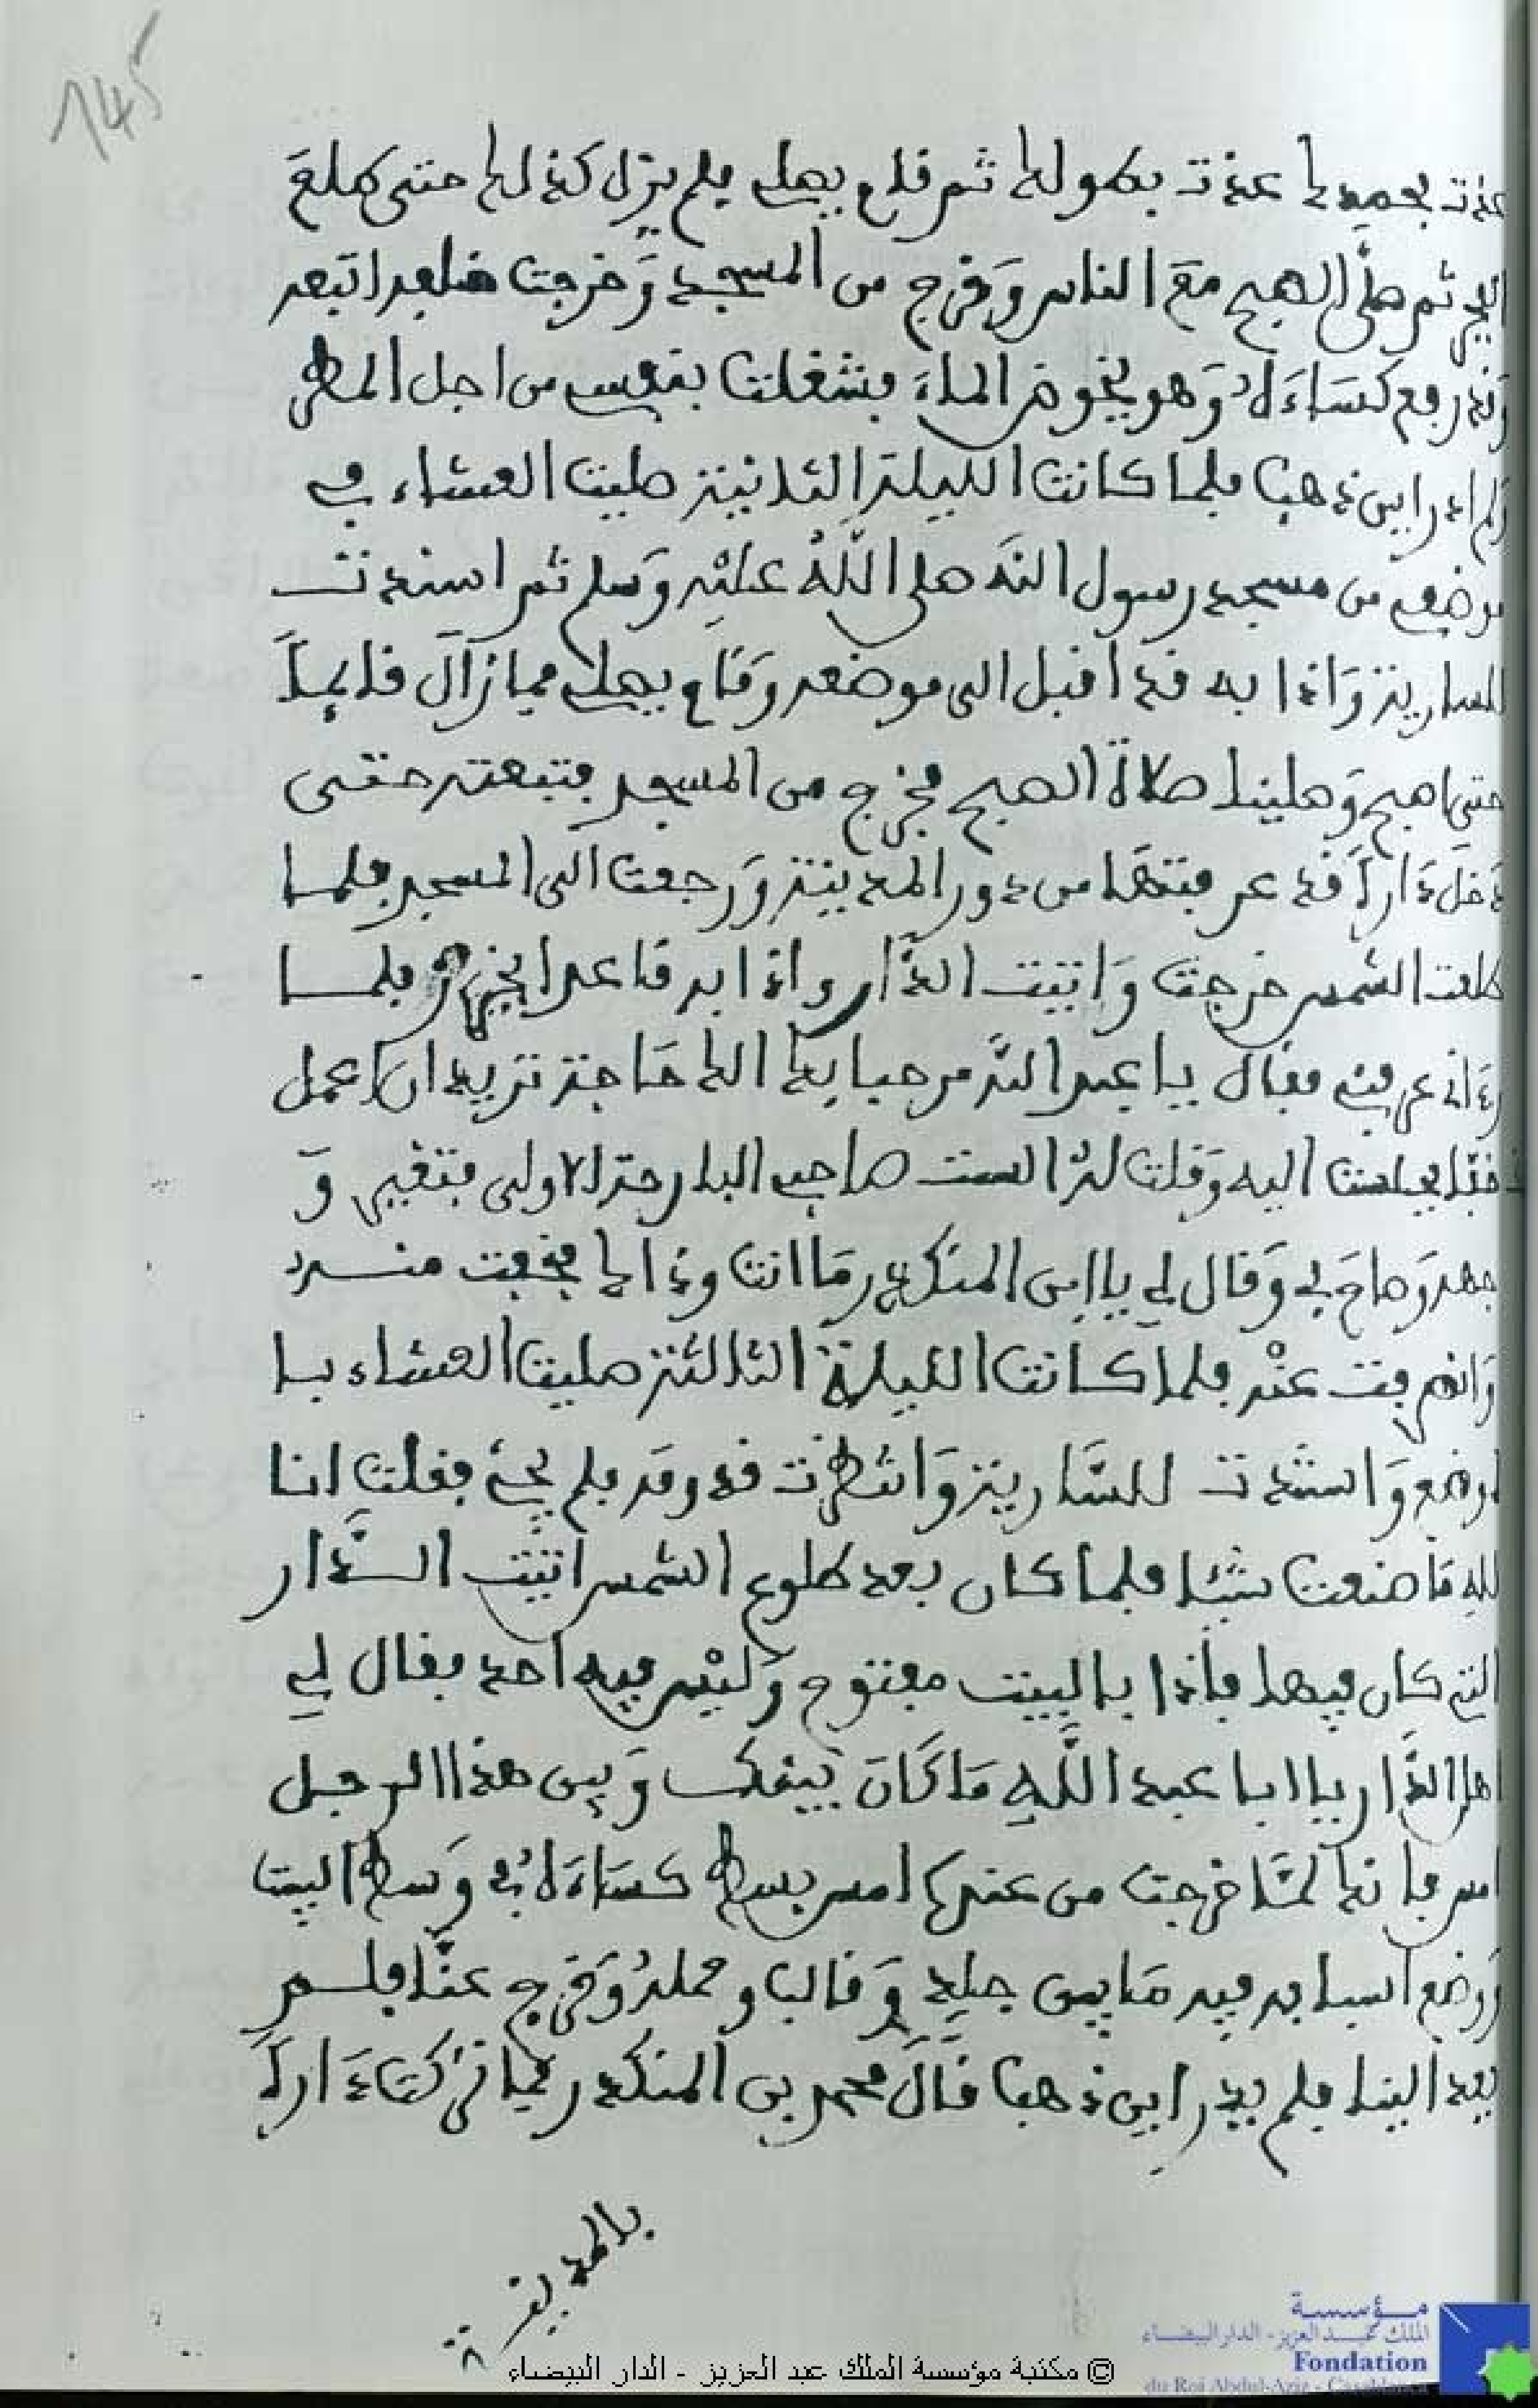 145
عذت بحمدك عذت بطولك ثم قام يصلي فلم يزل كذلك حتى طلع
الفجر ثم صلى الصبح مع الناس وخرج من المسجد وخرجت خلفه اتبعه
وقد رفع كساءه وهو يخوض الماء فشغلت بنفسي من اجل المطر
ولم ادر اين ذهب فلما كانت الليلة الثانية صليت العشاء في
موضعي من مسجد رسول الله صلى الله عليه وسلم ثم استندت
للسارية واذا به قد اقبل الى موضعه وقام يصلي فما زال قائما
حتى اصبح وصلينا صلاة الصبح فخرج من المسجد فتبعته حتى
دخل داره قد عرفتها من دور المدينة ورجعت الى المسجد فلما
طلعت الشمس خرجت واتيت الدار واذا به قاعدا يخرز فلما
رءاني عرفني فقال يا عبد الله مرحبا بك الك حاجة تريد ان اعمل
خفا فجلست اليه وقلت له الست صاحب البارحة الاولى فتغير و
جهه وصاح بي وقال لي يا ابن المنكدر ما انت وذاك فخفت منه
وانصرفت عنه فلما كانت الليلة الثالثة صليت العشاء با
لموضع واستندت للسارية وانتظرت قدومه فلم يجئ فقلت انا
لله ما صنعت شيئا فلما كان بعد طلوع الشمس اتيت الدار
التي كان فيها فاذا بالبيت مفتوح وليس فيه احد فقال لي
اهل الدار يا ابا عبد الله ما كان بينك وبين هذا الرجل
امس فانك لما خرجت من عنده امس بسط كساءه في وسط البيت
ووضع اسبابه فيه ما بين جلد وقالب وحمله وخرج عنا فلم
يعد الينا فلم يدر اين ذهب قال محمد بن المنكدر فما تركت دارا
بالمدينة
مؤسسة
الملك عبد العزيز - الدار البيضاء
Fondation
du Roi Abdul-Aziz - Casablanca
© مكتبة مؤسسة الملك عبد العزيز - الدار البيضاء